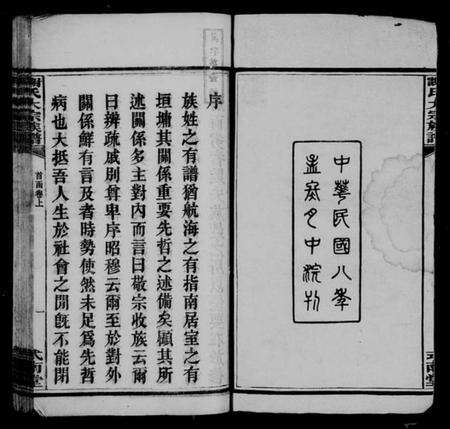 中華民國八年
孟冬月中浣刊
序
族姓之有譜猶航海之有指南居室之有
垣墉其關係重要先哲之述備矣顧其所
述關係多主對內而言曰敬宗收族云爾
曰辨疏戚別尊卑序昭穆云爾至於對外
關係鮮有言及者時勢使然未足為先哲
病也大抵吾人生於社會之間旣不能閉
謝氏大宗族譜
首函卷上
一